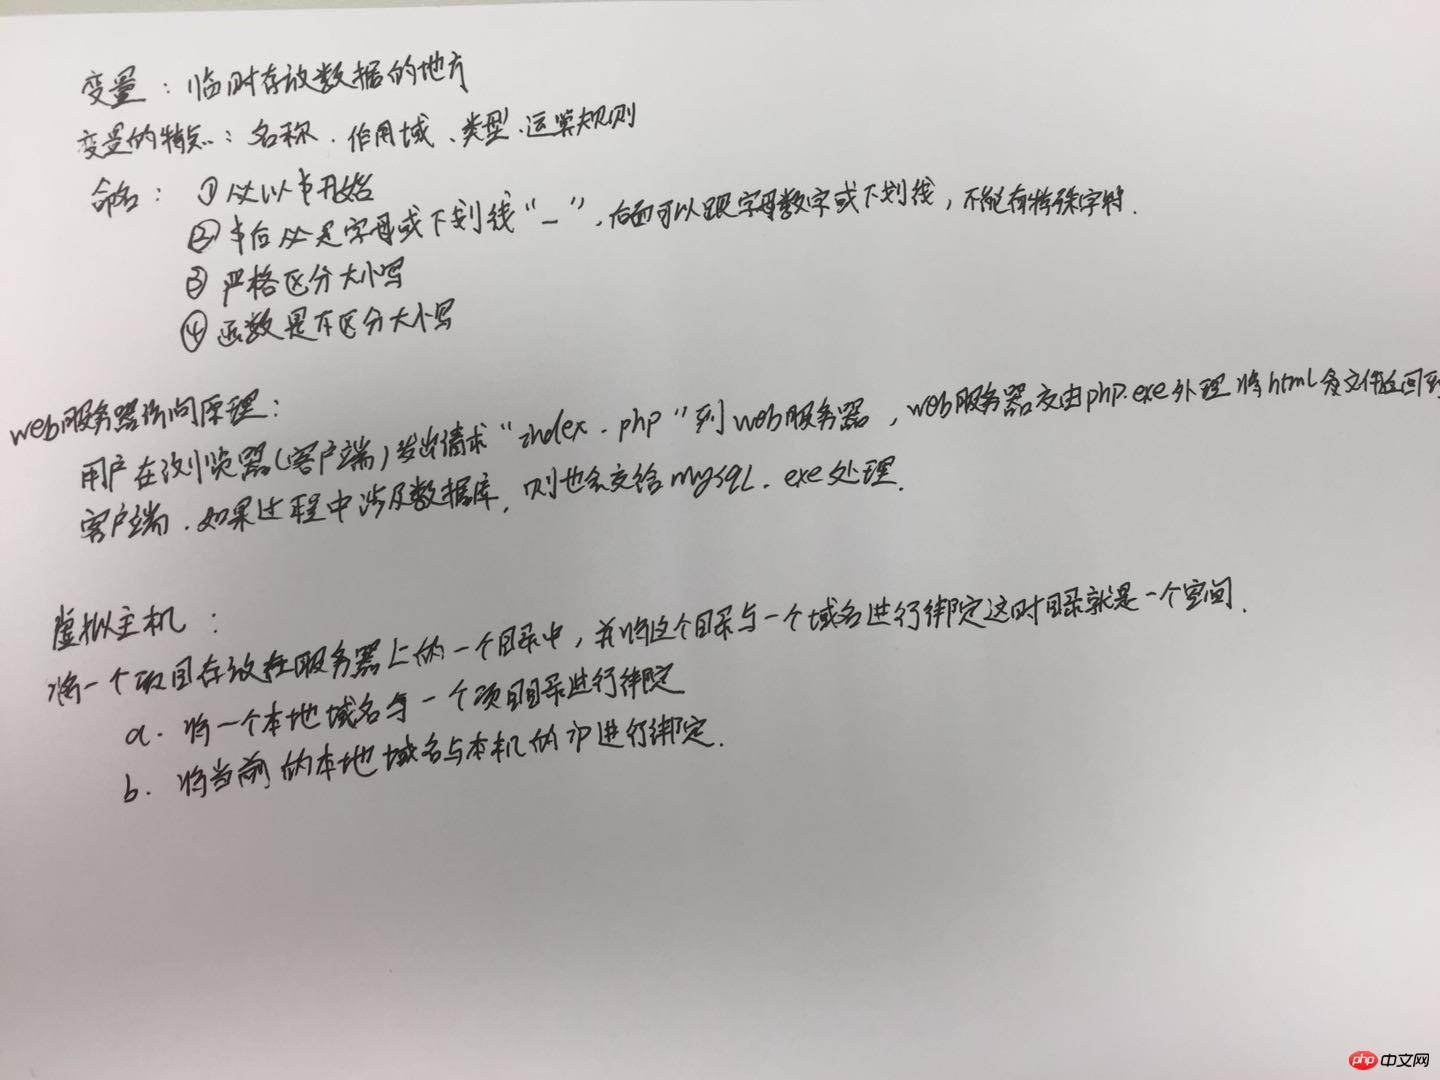 变量：临时存放数据的地方
变量的特点：名称、作用域、类型、运算规则
命名：①必以$开始
②$后必是字母或下划线“_”，后面可以跟字母数字或下划线，不能有特殊字符.
③严格区分大小写
④函数是不区分大小写
web服务器访问原理：
用户在浏览器(客户端)发出请求“index.php”到web服务器，web服务器交由php.exe处理将html类文件返回到
客户端.如果过程中涉及数据库，则也会交给mysql.exe处理.
虚拟主机：
将一个项目存放在服务器上的一个目录中，并将这个目录与一个域名进行绑定这时目录就是一个空间.
a.将一个本地域名与一个项目目录进行绑定
b.将当前的本地域名与本机的ip进行绑定.
php中文网